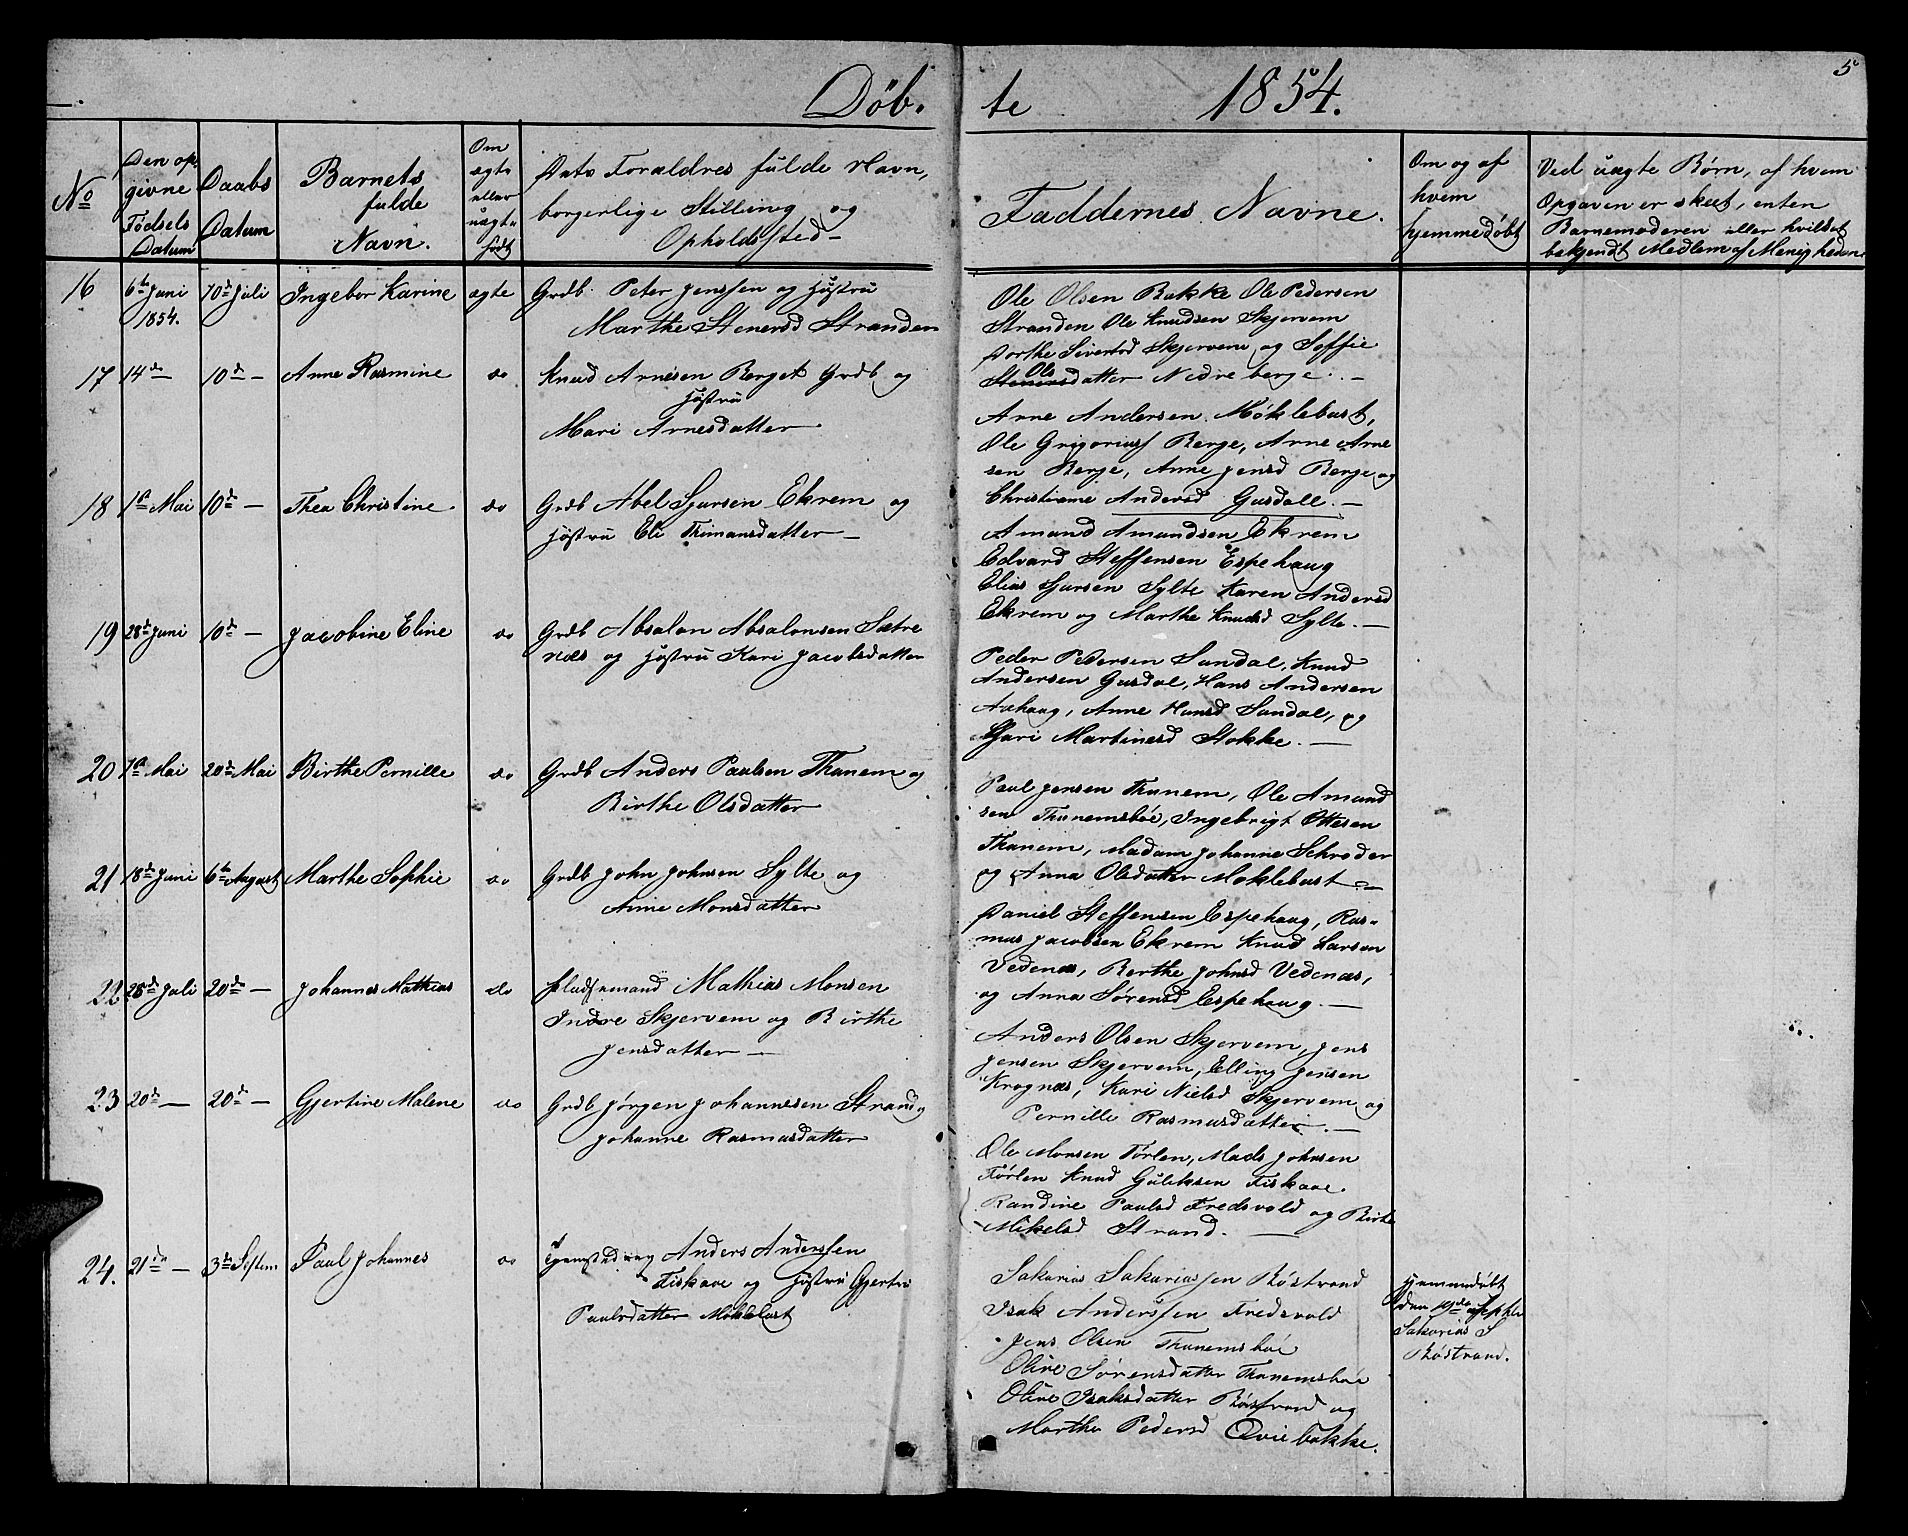 Døb. te 1854. 5
No
Den op-
givne
Fødsels
Datum
Daabs
Datum
Barnets
fulde
Navn.
Om
ægte
eller
uægte
født
Dets Forældres fulde Navn,
borgerlige Stilling og
Opholdsted
Faddernes Navne.
Om og af
hvem
hjemmedøbt
Ved uægte Børn, af hvem
Opgaven er skeet, enten
Barnemoderen eller hvilket
bekjendt Medlem af Menigheden
16 6te Juni 10de Juli Ingebor Karine ægte Grdb. Peter Jenssen og Hustru
1854.
Marthe Stenersd Stranden
Ole Olsen Bakke Ole Pedersen
Stranden Ole Knudsen Skjervem
Dorthe Sivertsd Skjervem og Soffie
Ols
Stenersdatter Nedreberge. —
17 14de — 10de — Anne Rasmine do Knud Arnesen Berget Grdb og
Hustru
Mari Arnesdatter
Arne Andersen Møklebust,
Ole Grigoriusf Berge, Arne Arne
sen Berge, Anne Jensd Berge og
Christiane Andersd Gusdall. —
18 1ste Mai 10de — Thea Christine do Grdb Abel Sjursen Ekrem og
Hustru Eli Thimansdatter —
Amand Amundsen Ekrem
Edvard Steffensen Espehaug
Elias Sjursen Sylte Karen Andersd
Ekrem og Marthe Knudsd Sylte. —
19 28de Juni 10de — Jacobine Eline do Grdb Absalon Absalonsen Sætre
næs og Hustru Kari Jacobsdatter
Peder Pedersen Sandal, Knud
Andersen Gusdal, Hans Andersen
Aahaug, Anne Hansd Sandal, og
Kari Martinesd Stokke. —
20 7de Mai 20de Mai Birthe Pernille do Grdb Anders Paulsen Thunem og
Birthe Olsdatter
Paul Jensen Thunem, Ole Amund
sen Thunemsbøe, Ingebrigt Ottesen
Thunem, Madam Johanne Schrøder
og Anna Olsdatter Moklebust. —
21 18de Juni 6te August Marthe Sophie do Grdb John Johnsen Sylte og
Anne Monsdatter
Daniel Steffensen Espehaug, Ras-
mus Jacobsen Ekrem Knud Larsen
Vedenæs, Berthe Johnsd Vedenæs,
og Anna Sørensd Espehaug. —
22 28de Juli 20de — Johannes Mathias do Pladsemand Mathias Monsen
Indre Skjervem og Birthe
Jensdatter —
Anders Olsen Skjervem, Jens
Jensen Skjervem, Elling Jensen
Krognæs, Kari Nielsd Skjervem og
Pernille Rasmusdatter. —
23 20de — 20de — Gjertine Malene do Grdb Jørgen Johannesen Strand og
Johanne Rasmusdatter
Ole Monsen Tørlen, Mads Johnsen
Tørlen Knud Guliksen Fiskaae.
Randine Paulsd Fredsvold og Birte
Mikelsd Strand. —
24. 21de — 3de Septem Paul Johannes do Anders Anderssen
Fiskaae og Hustru Gjertru
Paulsdatter Møklebust
Sakarias Sakariassen Røstrand
Isak Anderssen Fredsvold
Jens Olsen Thunemsbøe
Oline Sørensdatter Thunemsbøe
Oline Isaksdatter Røstrand og
Marthe Pedersd Qviebakke.
Hjemmedøbt
den 19de af
Sakarias S
Røstrand.